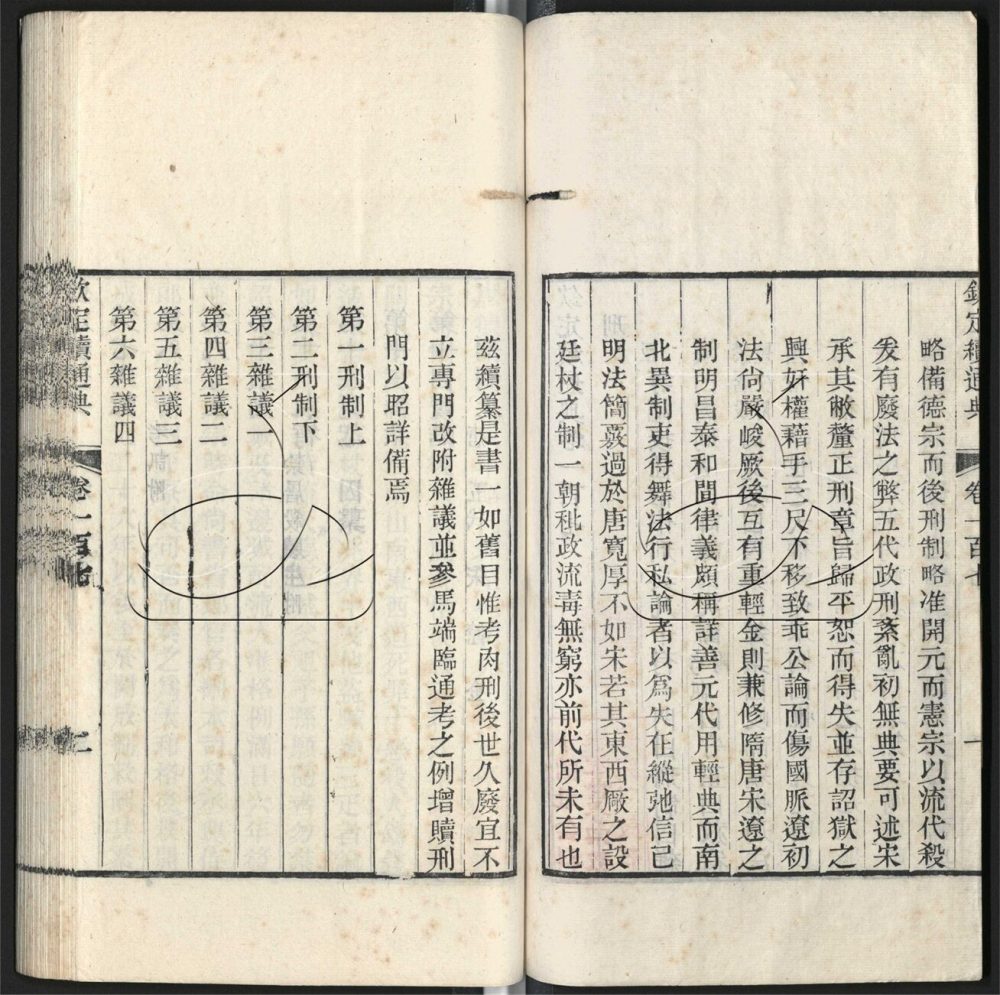 略備德宗而後刑制略准開元而憲宗以流代殺
矣有廢法之弊五代政刑紊亂初無典要可述宋
承其敝釐正刑章旨歸平恕而得失並存詔獄之
興奸權藉手三尺不移致乖公論而傷國脈遼初
法尚嚴峻厥後互有重輕金則兼修隋唐宋遼之
制明昌泰和間律義頗稱詳善元代用輕典而南
北異制吏得舞法行私論者以爲失在縱弛信已
明法簡覈過於唐寬厚不如宋若其東西厰之設
廷杖之制一朝秕政流毒無窮亦前代所未有也
茲續纂是書一如舊目惟考肉刑後世久廢宜不
立專門改附雜議並參馬端臨通考之例增贖刑
門以昭詳備焉
第一刑制上
第二刑制下
第三雜議一
第四雜議二
第五雜議三
第六雜議四
欽定續通典 卷一百七 二